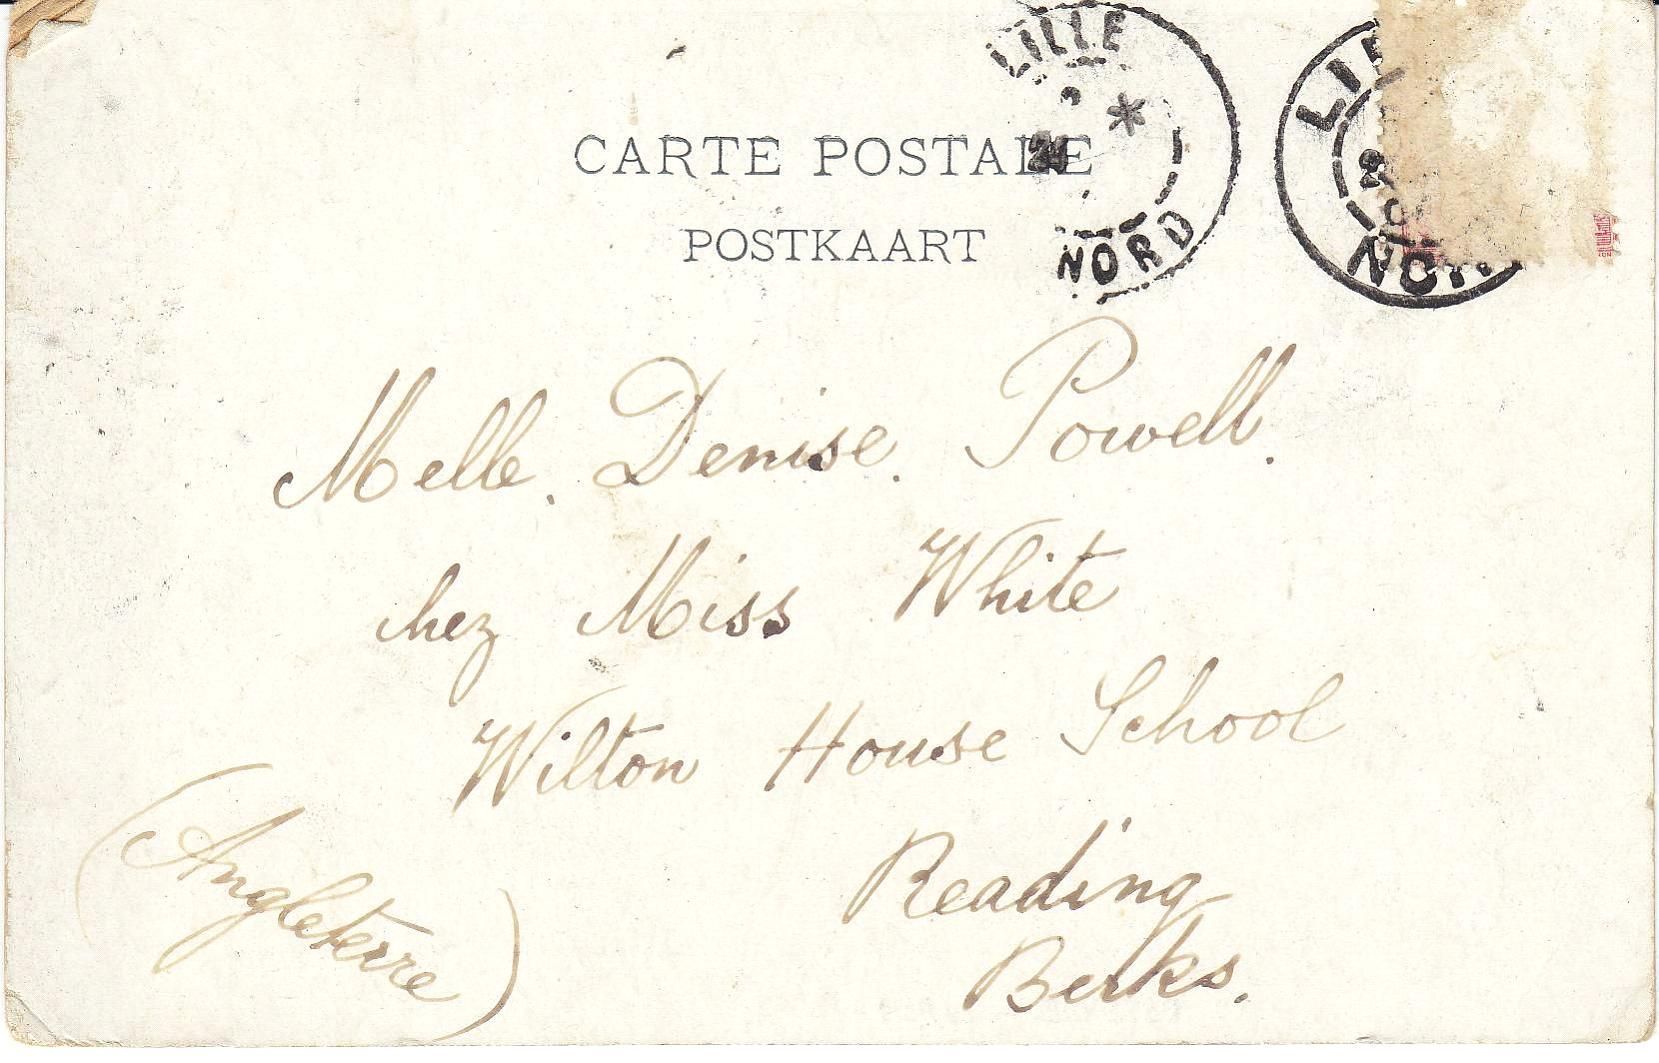 LILLE
NORD
CARTE POSTALE
POSTKAART
Melle. Denise. Powell.
chez Miss White
Wilton House School
Reading
Berks.
(Angleterre)